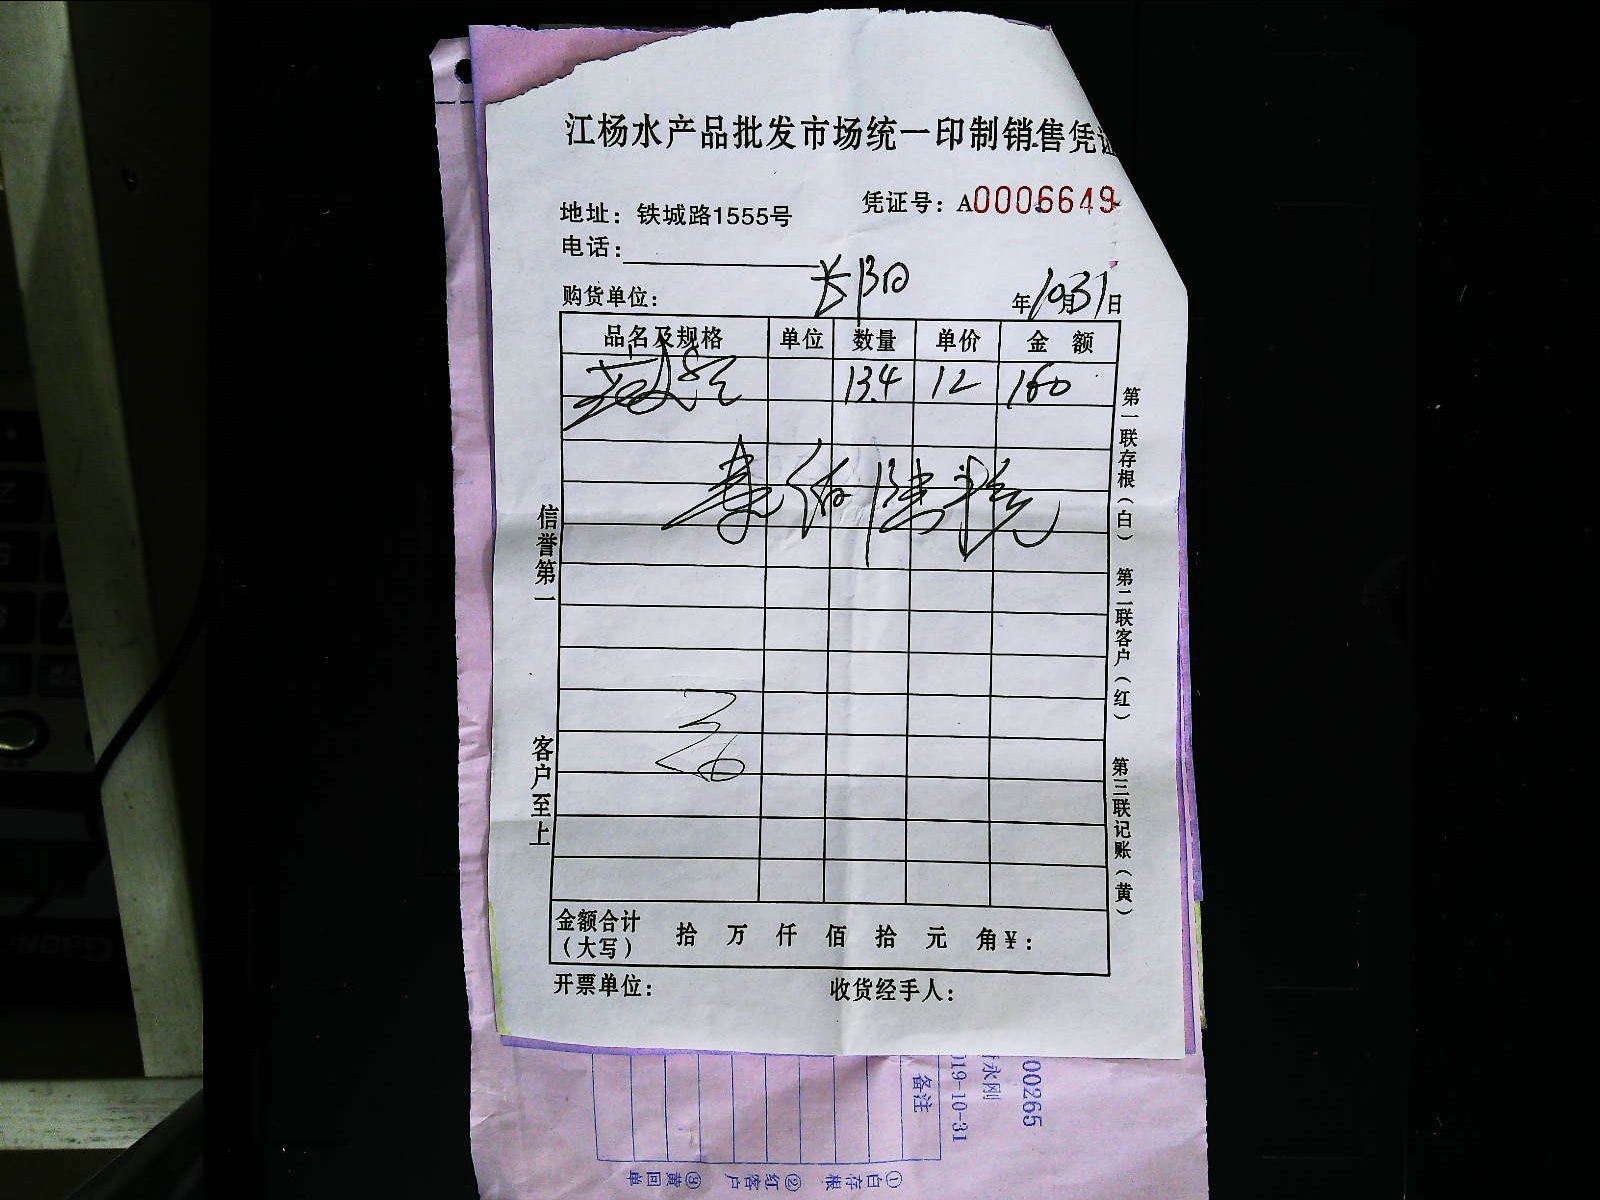 江杨水产品批发市场统一印制销售凭证
凭证号：A0006649
地址：铁城路1555号
电话：
购货单位：
年10月31日
品名及规格 单位 数量 单价 金额
13.4 12 160
信誉第一
客户至上
第一联存根（白）
第二联客户（红）
第三联记账（黄）
金额合计（大写） 拾 万 仟 佰 拾 元 角 ¥：
开票单位： 收货经手人：
00265
永刚
019-10-31
备注
①白存根 ②红客户 ③黄回单